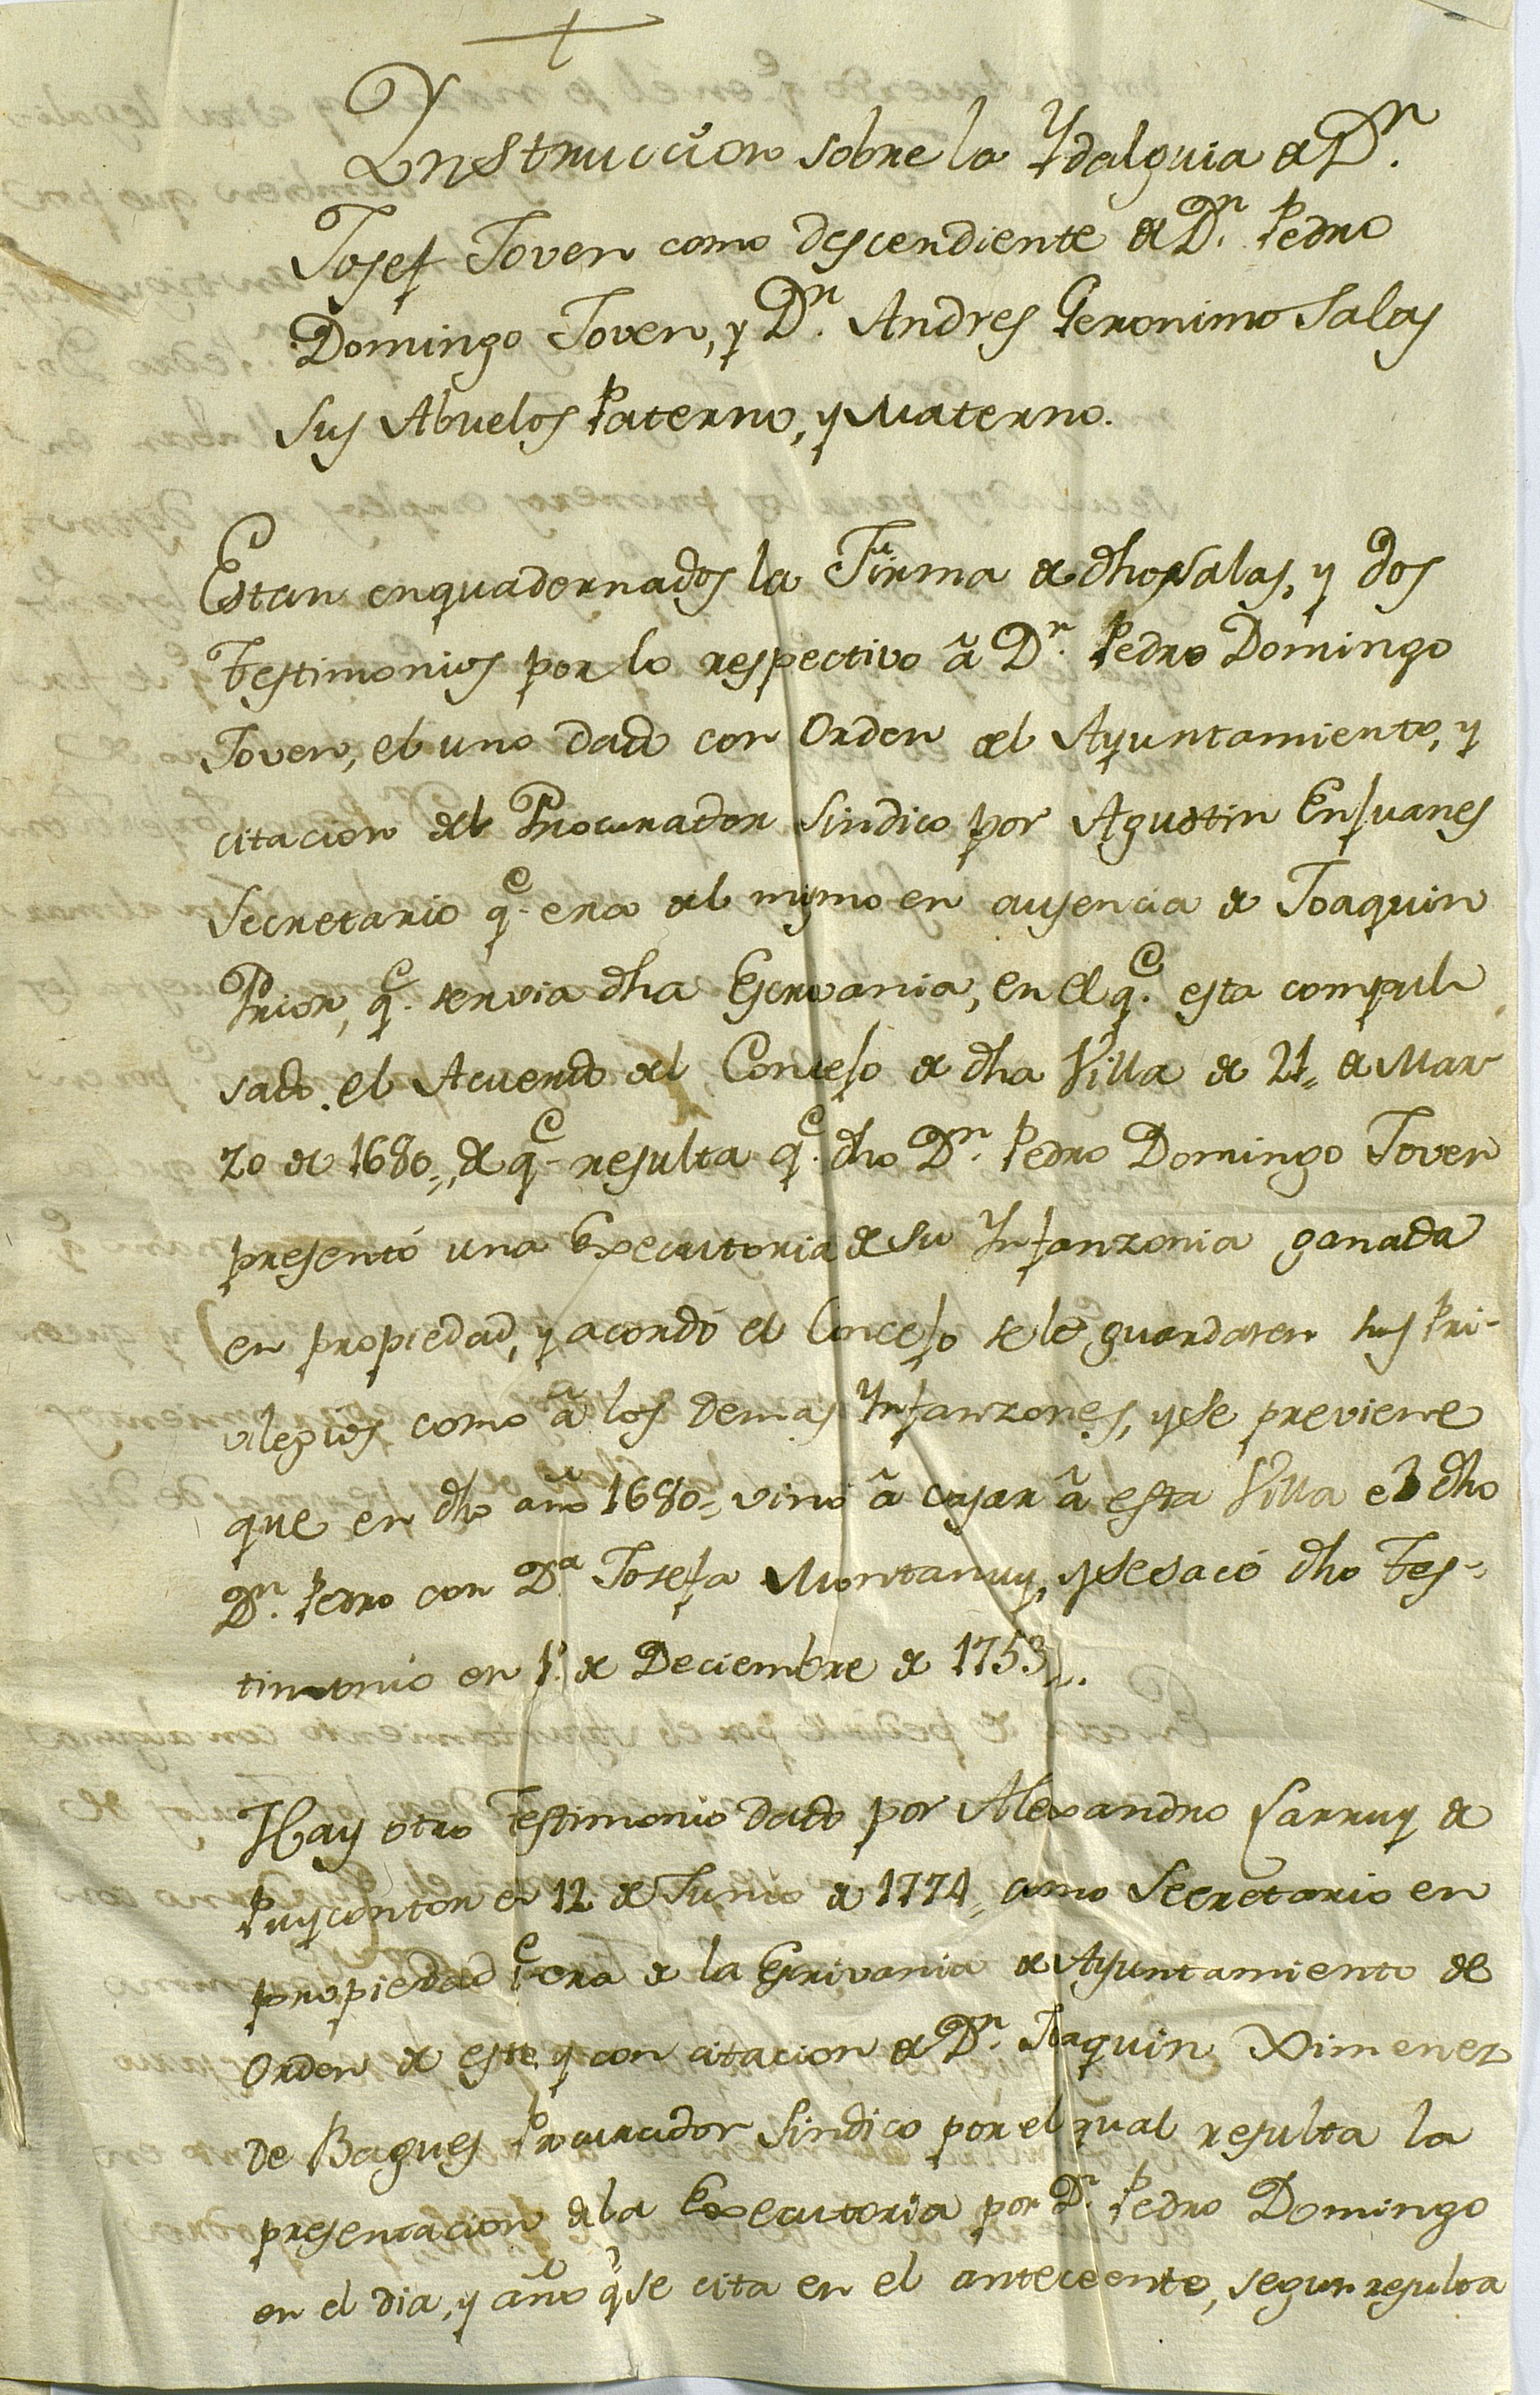 Ynstruccion sobre la Ydalguia de Dn.
Josef Joven como descendiente de Dn. Pedro
Domingo Joven, y Dn. Andres Geronimo Salas
sus Abuelos Paterno, y Materno.
Estan enquadernados la Firma de dho Salas, y dos
testimonios por lo respectivo â Dn. Pedro Domingo
Joven, el uno dado con Orden del Ayuntamiento, y
citacion del Procurador Sindico por Agustin Enjuanes
Secretario qe. era del mismo en ausencia de Joaquin
Prior, qe. servia dha Escrvania, en el qe. esta compul
sado el Acuerdo del Concejo de dha Villa de 21= de Mar
zo de 1680=, de qe resulta qe. dho Dn. Pedro Domingo Joven
presentó una Executoria de su Ynfanzonia ganada
en propiedad, y acordó el Concejo se le guardasen sus Pri-
vilegios como â los demas Ynfanzones, y se previene
que en dho año 1680= vino â casar â esta Villa el dho
Dn. Pedro con Da. Josefa Montanuy, y se sacó dho Tes-
timonio en 1º. de Deciembre de 1753=.
Hay otro Testimonio dado por Alexandro Carruy de
Puycontor en 12 de Junio de 1774= como Secretario en
propiedad qe era de la Escrivania de Ayuntamiento de
Orden de este, y con citacion de Dn. Joaquin Ximenez
de Bagues Procurador Sindico por el qual resulta la
presentacion de la Executoria por Dn. Pedro Domingo
en el dia, y año q se cita en el antecedente, segun resulta